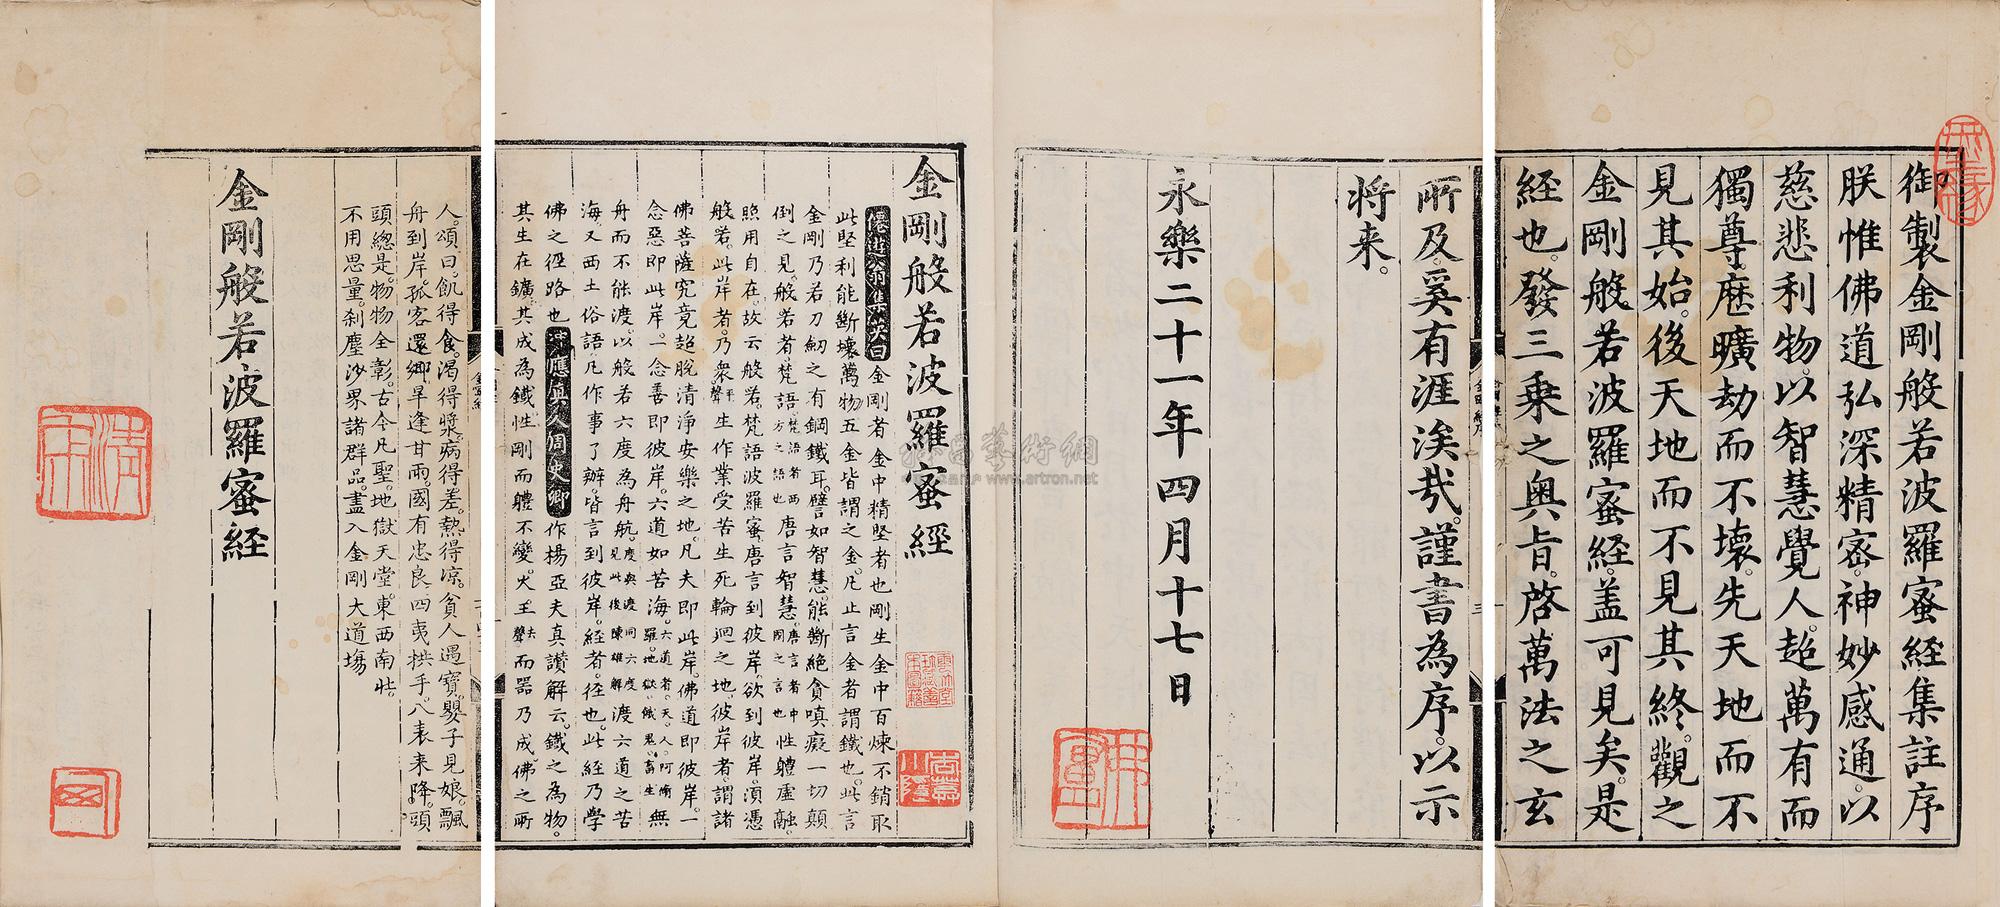 御製金剛般若波羅蜜經集註序
朕惟佛道弘深精密神妙感通以
慈悲利物以智慧覺人超萬有而
獨尊歷曠劫而不壞先天地而不
見其始後天地而不見其終觀之
金剛般若波羅蜜經蓋可見矣是
經也發三乘之奧旨啓萬法之玄
所及奚有涯涘哉謹書為序以示
將来
永樂二十一年四月十七日
金剛般若波羅蜜經
金剛者金中精堅者也剛生金中百煉不銷取
此堅利能斷壞萬物五金皆謂之金凡止言金者謂鐵也此言
金剛乃若刀劒之有鋼鐵耳譬如智慧能斷絕貪嗔癡一切顛
倒之見般若者梵語梵語者西方之語也唐言智慧唐言者中國之言也性體虛融
照用自在故云般若梵語波羅蜜唐言到彼岸欲到彼岸須憑
般若此岸者乃衆平聲生作業受苦生死輪迴之地彼岸者謂諸
佛菩薩究竟超脫清淨安樂之地凡夫即此岸佛道即彼岸一
念惡即此岸一念善即彼岸六道如苦海六道者天人阿脩羅地獄餓鬼畜生無
舟而不能渡以般若六度為舟航度與渡同六度見此後陳雄解渡六道之苦
海又西土俗語凡作事了辦皆言到彼岸經者徑也此經乃學
佛之徑路也冲應真人周史卿作楊亞夫真讚解云鐵之為物
其生在鑛其成為鐵性剛而體不變火王去聲而器乃成佛之所
人頌曰飢得食渴得漿病得差熱得凉貧人遇寶嬰子見娘飄
舟到岸孤客還鄉旱逢甘雨國有忠良四夷拱手八表来降頭
頭總是物物全彰古今凡聖地獄天堂東西南北
不用思量刹塵沙界諸群品盡入金剛大道塲
金剛般若波羅蜜經
www.artron.net